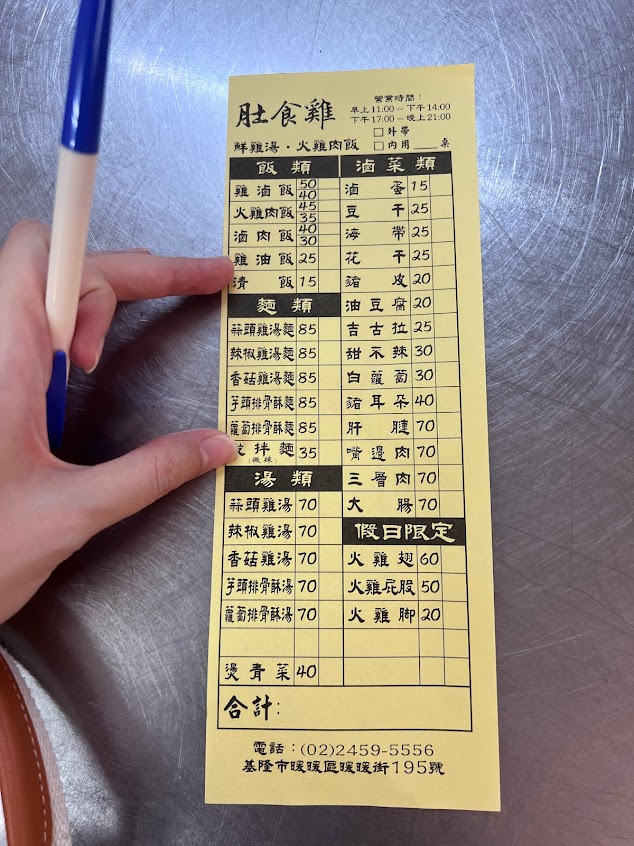 肚食雞
營業時間：
早上11:00～下午14:00
下午17:00～晚上21:00
鮮雞湯・火雞肉飯
□外帶
□內用____桌
飯類
雞滷飯 50 40
火雞肉飯 45 35
滷肉飯 40 30
雞油飯 25
清飯 15
麵類
蒜頭雞湯麵 85
辣椒雞湯麵 85
香菇雞湯麵 85
芋頭排骨酥麵 85
蘿蔔排骨酥麵 85
拌麵 35
(微辣)
湯類
蒜頭雞湯 70
辣椒雞湯 70
香菇雞湯 70
芋頭排骨酥湯 70
蘿蔔排骨酥湯 70
燙青菜 40
滷菜類
滷蛋 15
豆干 25
海帶 25
花干 25
豬皮 20
油豆腐 20
吉古拉 25
甜不辣 30
白蘿蔔 30
豬耳朵 40
肝腱 70
嘴邊肉 70
三層肉 70
大腸 70
假日限定
火雞翅 60
火雞屁股 50
火雞腳 20
合計：
電話：(02)2459-5556
基隆市暖暖區暖暖街195號